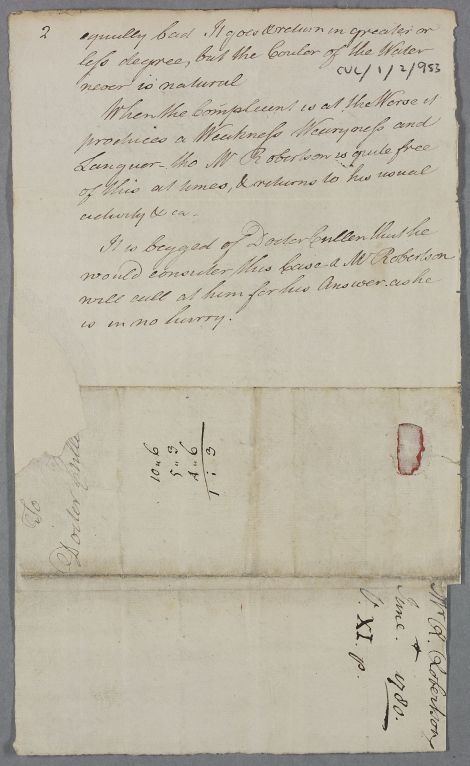 2
equally bad It goes & return in greater or
less degree, but the Couler of the Water
never is natural
CUL/1/2/953
When the Complient is at the Worse it
produces a Weakness Wearyness and
Languor - tho Mr Robertson is quite free
of this at times, & returns to his usual
activity & ca.
It is begged of Doctor Cullen that he
would consider this Case & Mr Robertson
will call at him for his Answer. as he
is in no hurry.
To
Doctor Culle
10 " 6
5 " 3
4 " 6
1 : 3
Mr R. Robertson
June 1780.
V. XI. p.